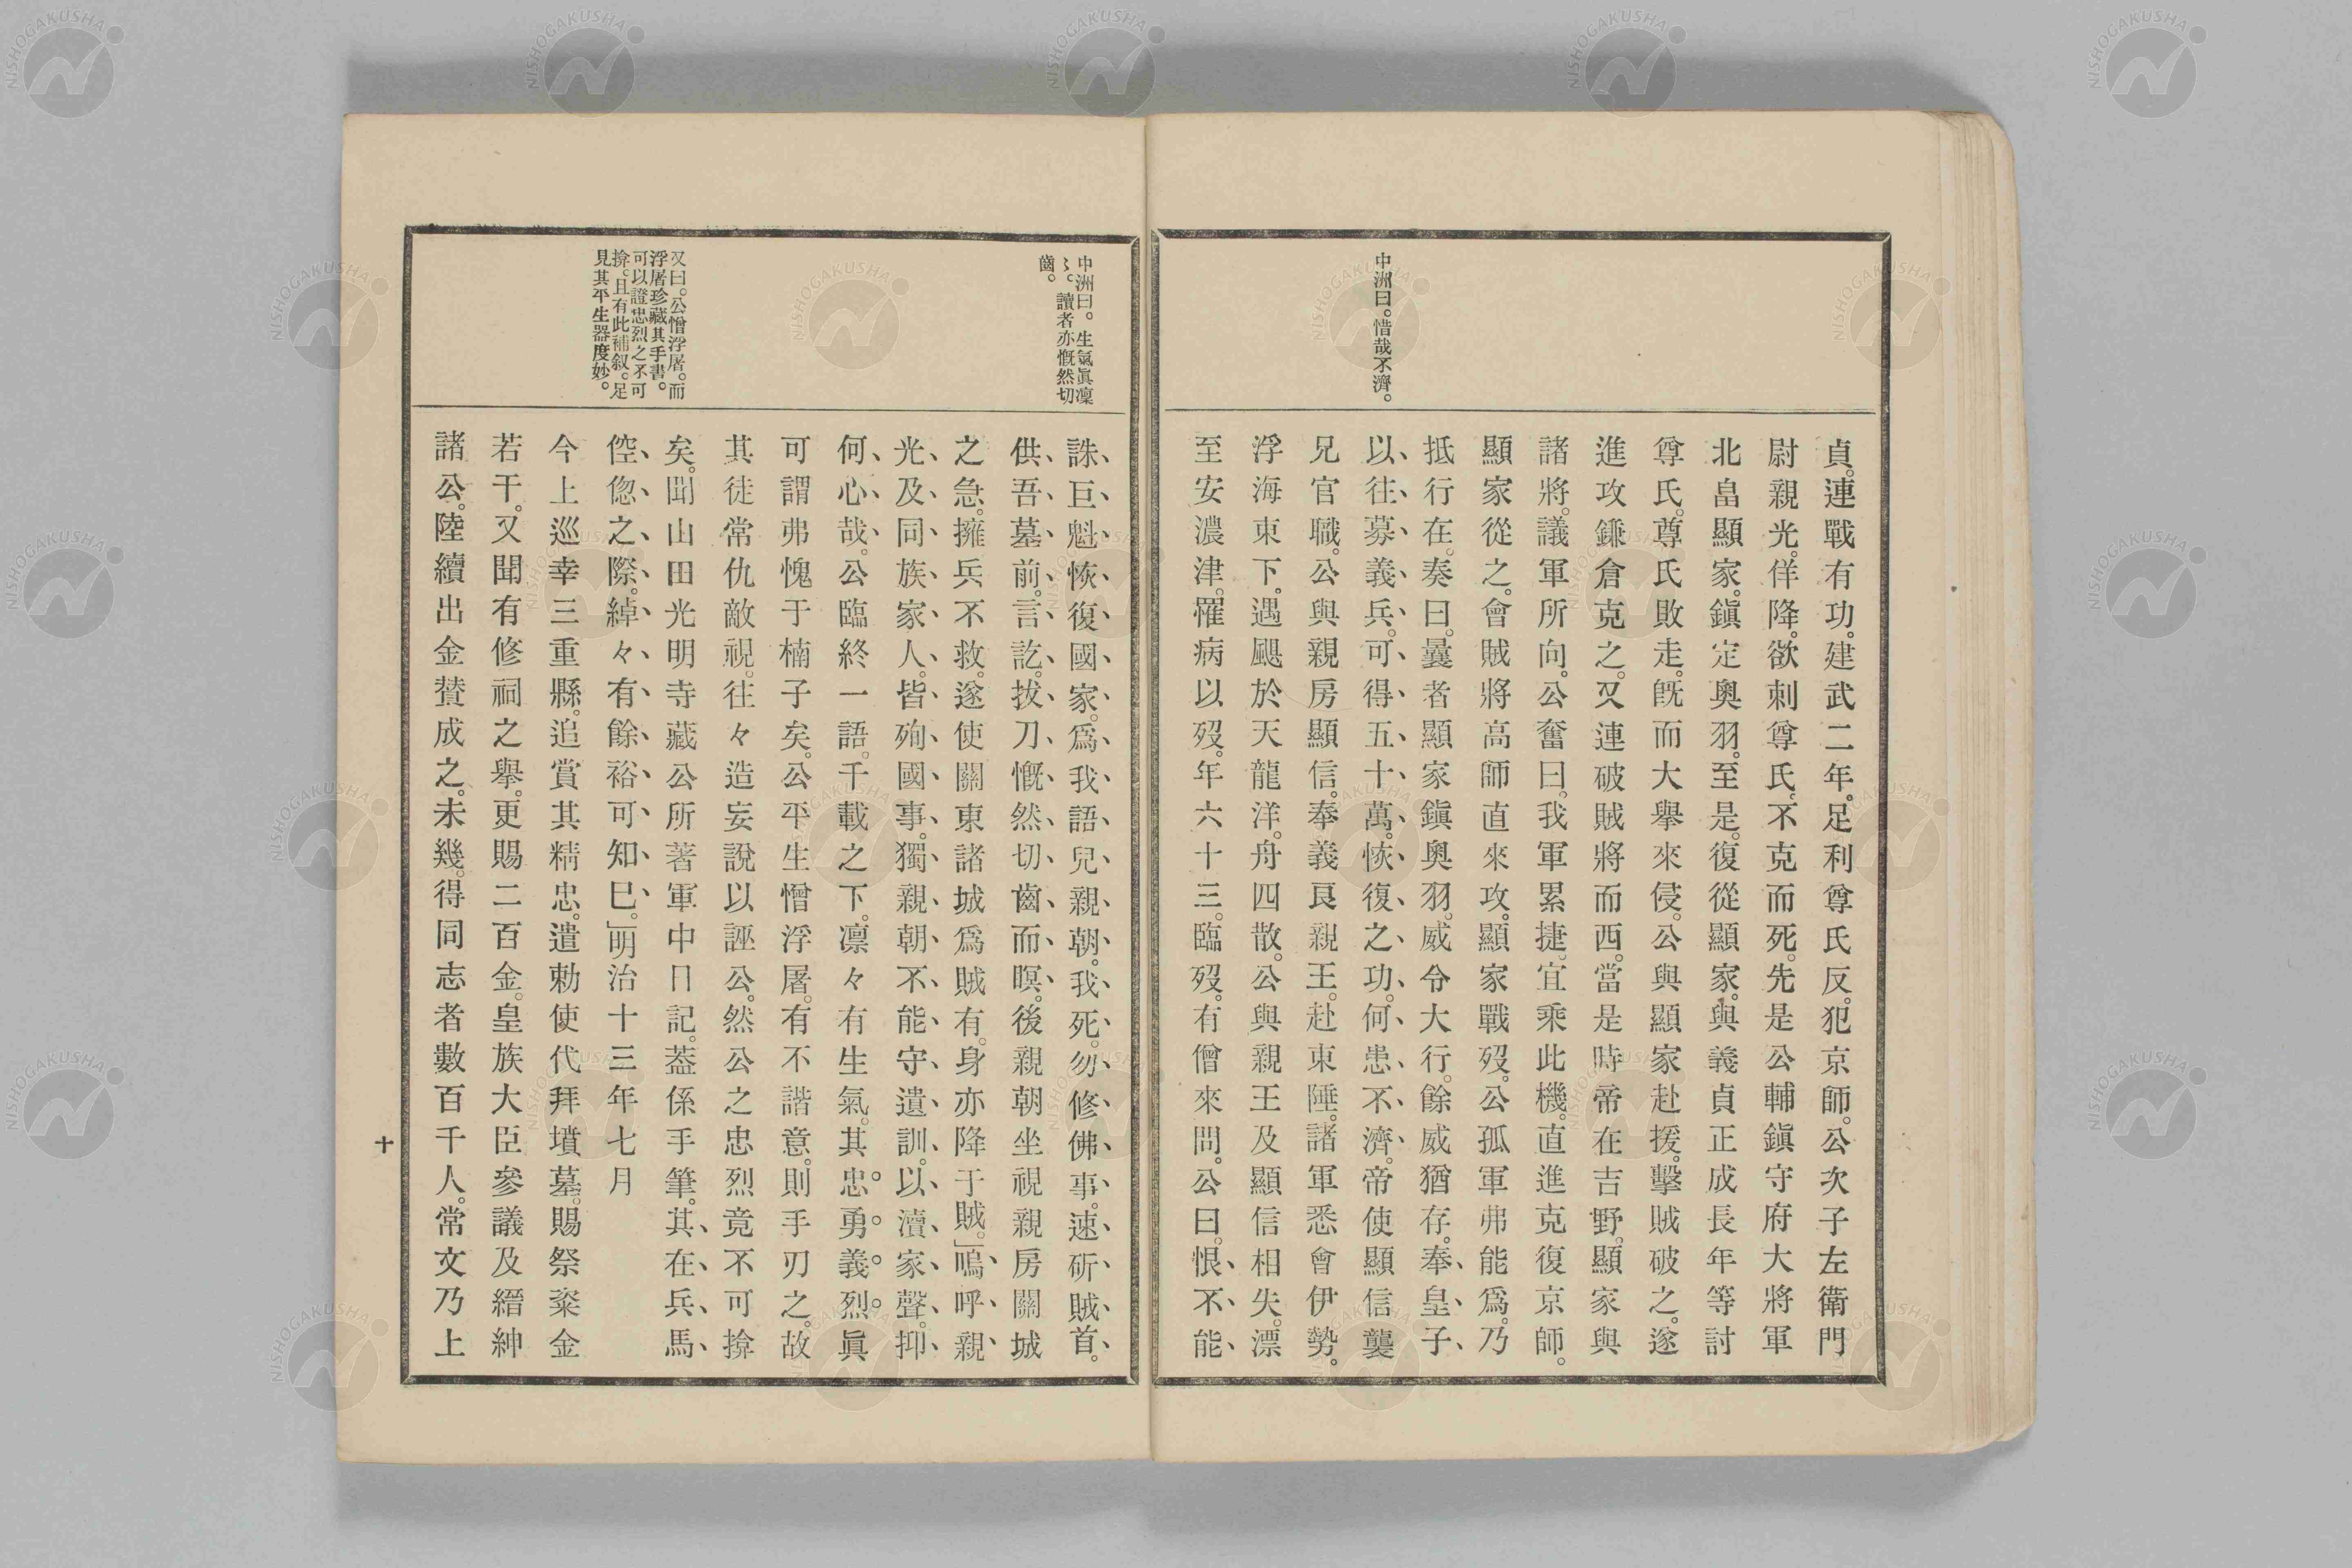 中洲曰。惜哉不濟。
貞。連戰有功。建武二年。足利尊氏反。犯京師。公次子左衛門
尉親光。佯降。欲刺尊氏。不克而死。先是公輔鎭守府大將軍
北畠顯家。鎭定奧羽。至是。復從顯家。與義貞正成長年等討
尊氏。尊氏敗走。旣而大擧來侵。公與顯家赴援。擊賊破之。遂
進攻鎌倉克之。又連破賊將而西。當是時帝在吉野。顯家與
諸將。議軍所向。公奮曰。我軍累捷。宜乘此機。直進克復京師。
顯家從之。會賊將高師直來攻。顯家戰歿。公孤軍弗能爲。乃
抵行在。奏曰。曩者顯家鎭奧羽。威令大行。餘威猶存。奉皇子
以往。募義兵。可得五十萬。恢復之功。何患不濟。帝使顯信襲
兄官職。公與親房顯信。奉義良親王。赴東陲。諸軍悉會伊勢。
浮海東下。遇颶於天龍洋。舟四散。公與親王及顯信相失。漂
至安濃津。罹病以歿。年六十三。臨歿。有僧來問。公曰。恨不能
中洲曰。生氣眞凜
〻。讀者亦慨然切
齒。
又曰。公憎浮屠。而
浮屠珍藏其手書。
可以證忠烈之不可
揜。且有此補叙。足
見其平生器度妙。
誅巨魁恢復國家。爲我語兒親朝。我死。勿修佛事。速斫賊首。
供吾墓前。言訖。拔刀慨然切齒而瞑。後親朝坐視親房關城
之急。擁兵不救。遂使關東諸城爲賊有。身亦降于賊。」嗚呼親
光及同族家人。皆殉國事。獨親朝不能守遺訓。以瀆家聲。抑
何心哉。公臨終一語。千載之下。凛々有生氣。其忠勇義烈。眞
可謂弗愧于楠子矣。公平生憎浮屠。有不諧意。則手刃之。故
其徒常仇敵視。往々造妄說以誣公。然公之忠烈竟不可揜
矣。聞山田光明寺藏公所著軍中日記。葢係手筆。其在兵馬
倥偬之際。綽々有餘裕可知巳。」明治十三年七月
今上巡幸三重縣。追賞其精忠。遣勅使代拜墳墓。賜祭粢金
若干。又聞有修祠之擧。更賜二百金。皇族大臣參議及縉紳
諸公。陸續出金贊成之。未幾。得同志者數百千人。常文乃上
十